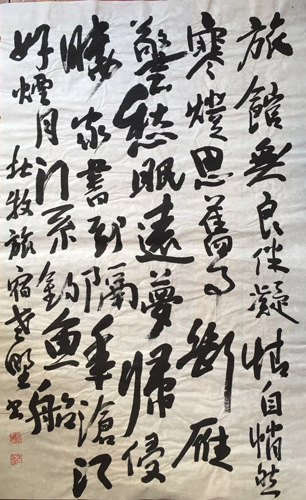 旅館無良伴凝情自悄然
寒燈思舊事断雁
警愁眠遠夢歸侵
曉家書到隔年滄江
好煙月门系釣魚船
杜牧旅宿 书